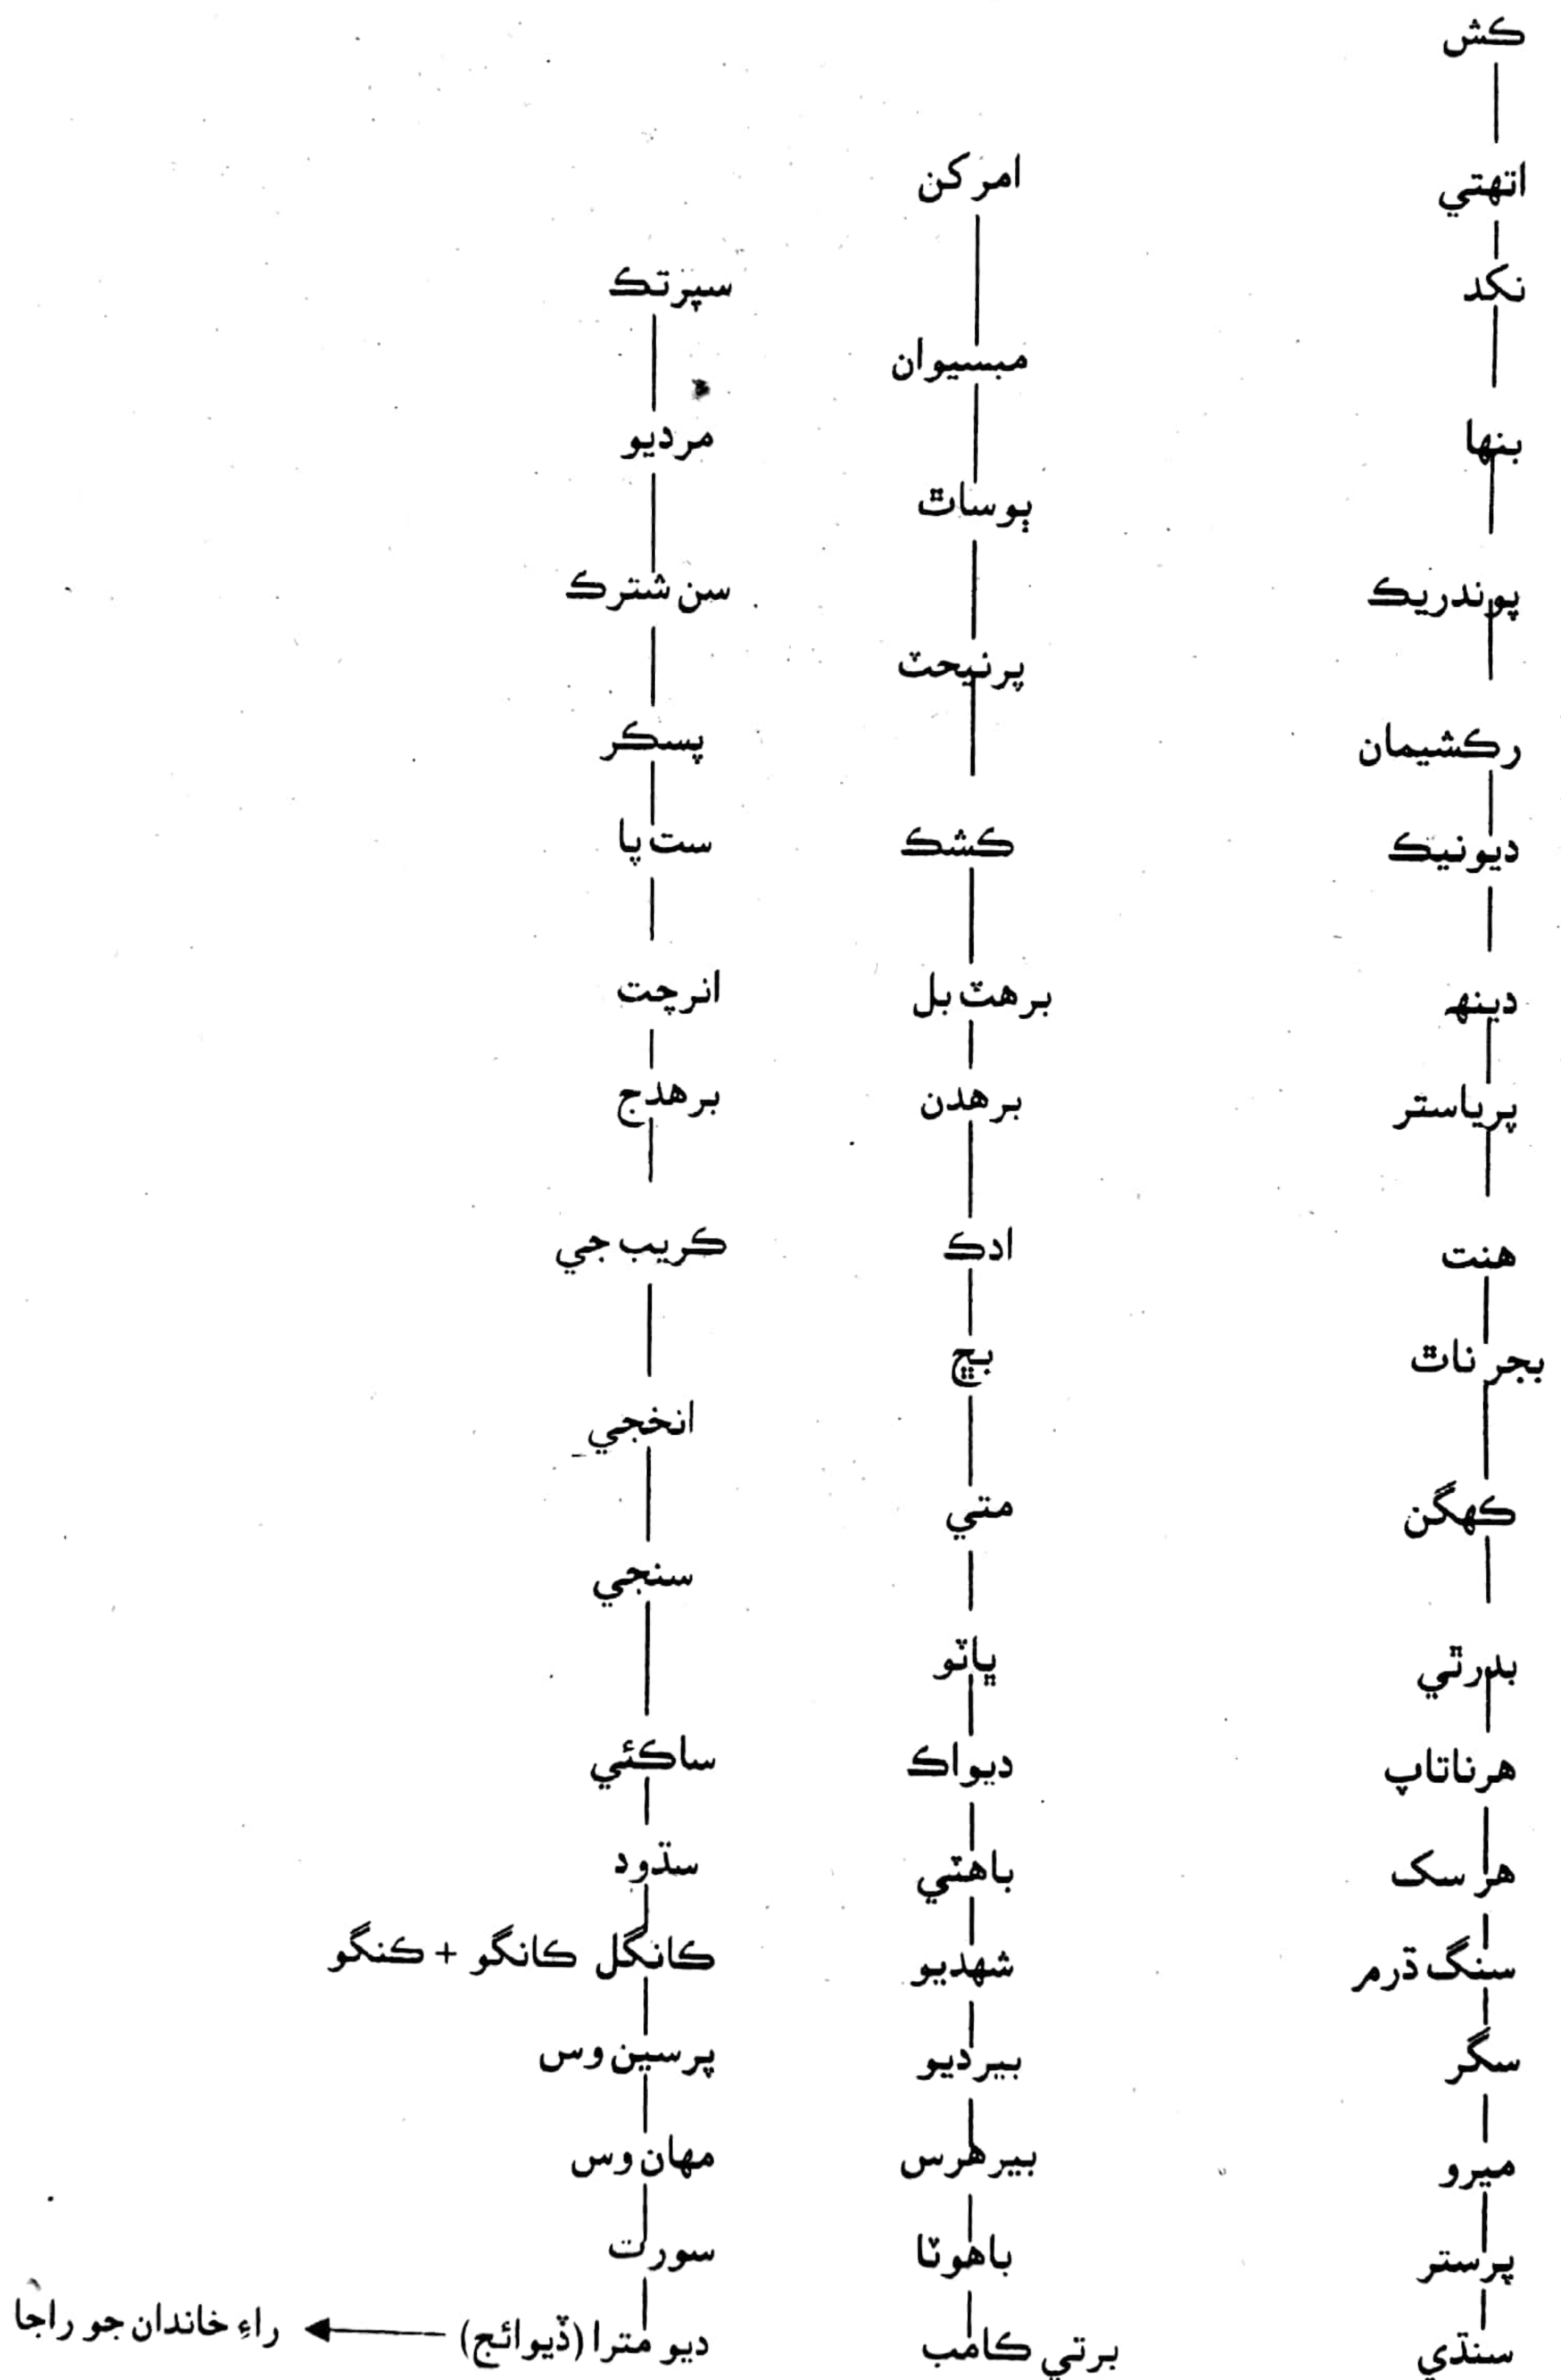 ڪش
اتهتي
نڪد
بنها
پوندريڪ
رڪشيمان
ديونيڪ
دينهہ
پرياستر
هنت
بجر ناٿ
ڪهگن
بدرٿي
هرناتاپ
هر سک
سنگ ڌرم
سگر
ميرو
پرستر
سنڌي
امرکن
مبسيوان
ٻوساٿ
پرنيحٽ
ڪشڪ
برهٽ بل
برهدن
ادڪ
بڇ
متي
ڀاٽو
ديواڪ
باهٽي
شهديو
بيرديو
بيرهرس
باهوٽا
برتي ڪامب
سپرتڪ
مرديو
سن شترڪ
پسڪر
ست پا
انرچت
برهدج
ڪريب جي
انخجي
سنجي
ساڪئي
سڌود
ڪانگل ڪانگو + ڪنگو
پرسين وس
مهان وس
سورت
ديو مترا (ڏيوائج) راءِ خاندان جو راجا